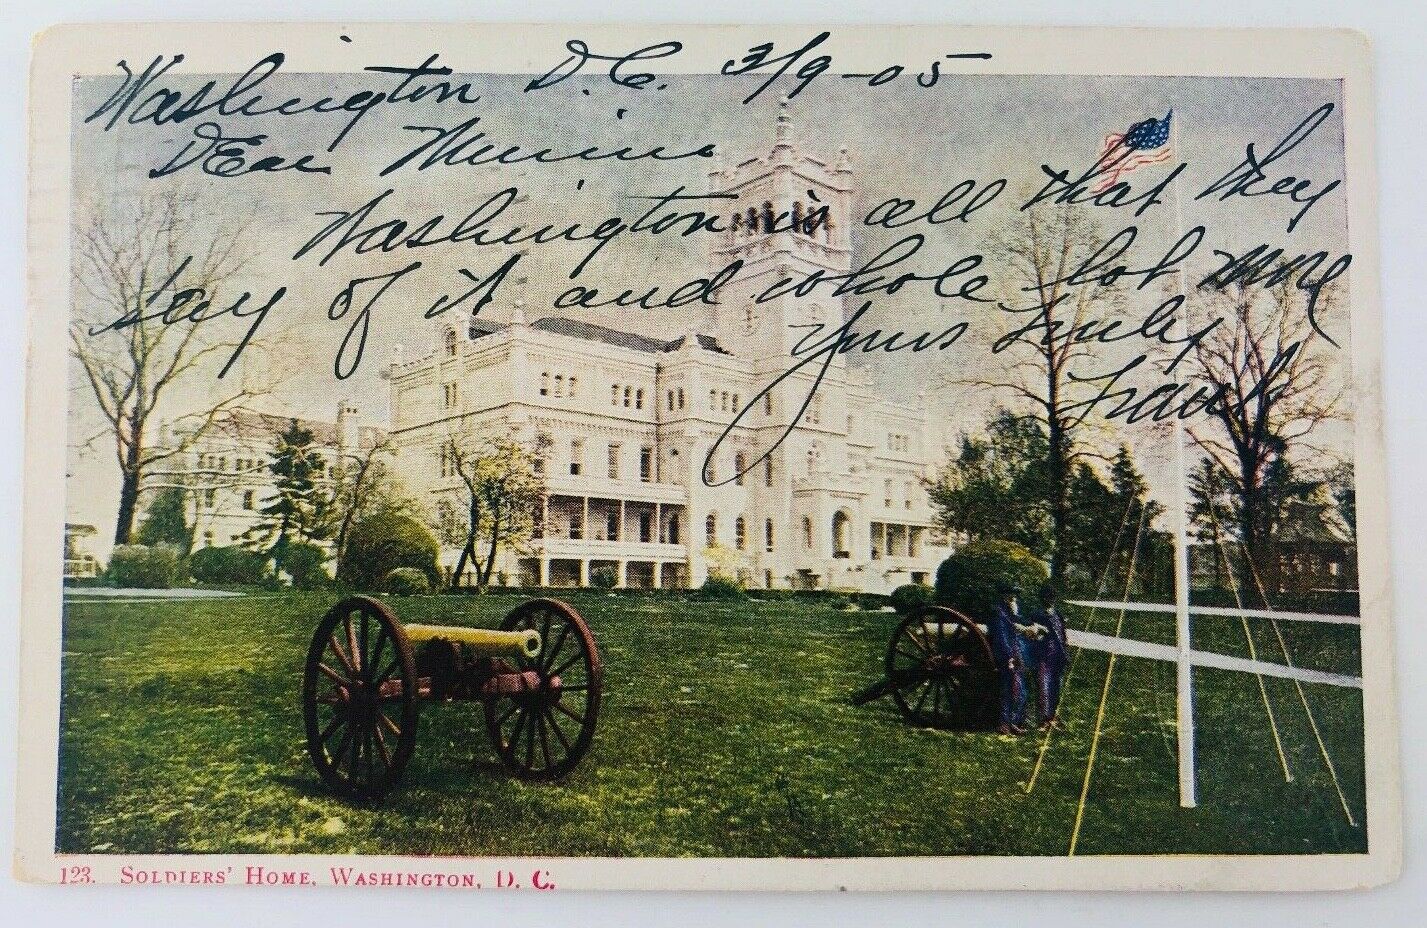 Washington D.C. 3/9-05
Dear Minnie
Washington is all that they
say of it and whole lot more
Yours Truly
Frank
123. SOLDIERS' HOME, WASHINGTON, D. C.